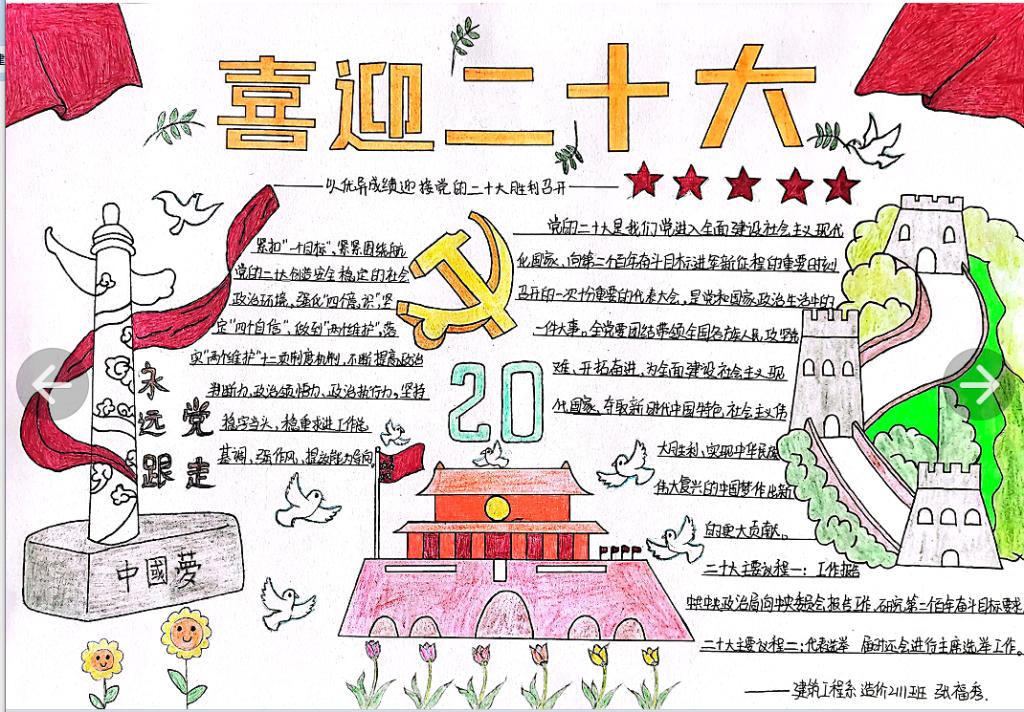 喜迎二十大
以优异成绩迎接党的二十大胜利召开
紧扣“一个目标”，紧紧围绕航
党的二大创造安全稳定的社会
政治环境，强化“四个意识”，坚
定“四个自信”、做到“两个维护”，落
实“两个维护”十二项制度机制，不断提高政治
判断力、政治领悟力、政治执行力。坚持
稳字当头，稳重求进工作总
基调、强作风、提高能力导向
永远跟党走
中國夢
20
党的二十大是我们党进入全面建设社会主义现代
化国家、向第二个百年奋斗目标进军新征程的重要时刻
召开的一次十份重要的代表大会，是党和国家政治生活中的
一件大事。全党要团结带领全国各族人民，攻坚克
难、开拓奋进，为全面建设社会主义现
代化国家、夺取新时代中国特色社会主义伟
大胜利、实现中华民族
伟大复兴的中国梦作出新
的更大贡献。
二十大主要议程一：工作报告
中共中央政治局向中央委员会报告工作，研究第二个百年奋斗目标要求
二十大主要议程二：代表选举 届时还会进行主席选举工作。
——建筑工程系造价2111班 张福秀.